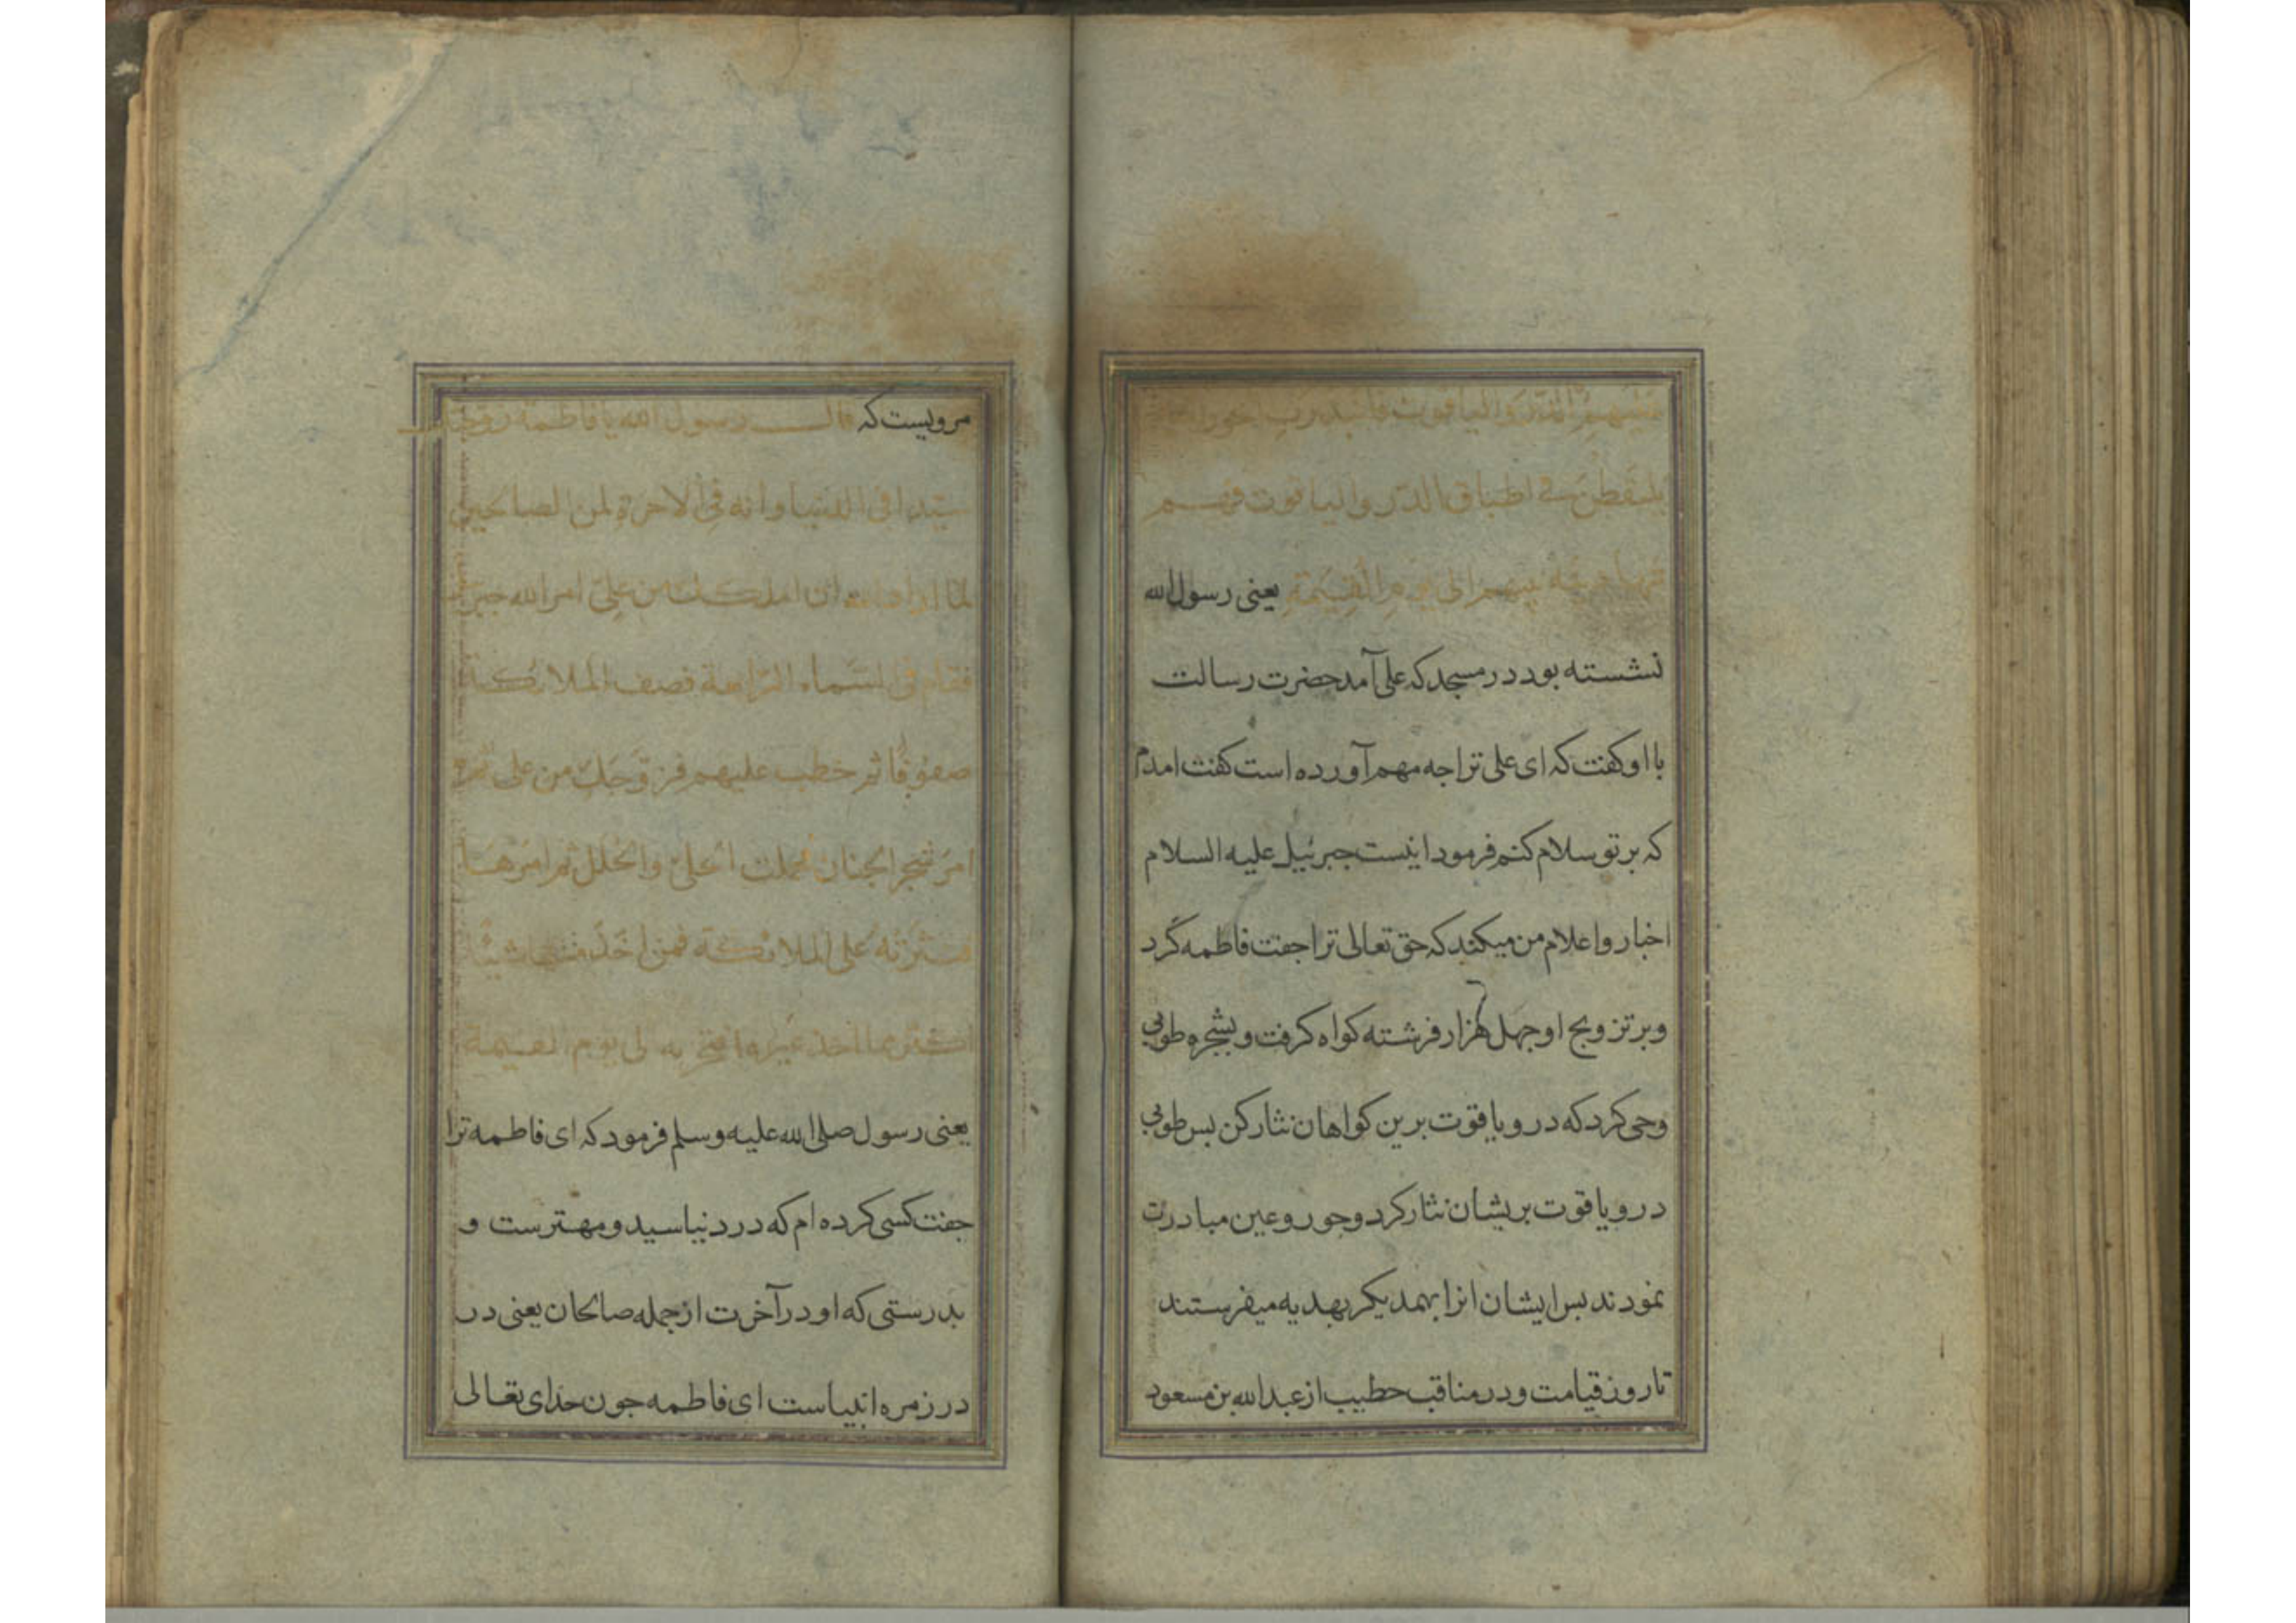 عليهم الدر والياقوت فابتدرت الحور
يلتقطن فى اطباق الدر والياقوت فهم
بينهم الى يوم القيمة يعنى رسول الله
نشسته بود در مسجد كه على آمد حضرت رسالت
با او كفت كه اى على ترا جه مهم آورده است كفت امدم
كه بر تو سلام كنم فرمود اينست جبرئيل عليه السلام
اخبار و اعلام من ميكند كه حق تعالى ترا جفت فاطمه كرد
و بر تزويج او جهل هزار فرشته كواه كرفت و بشجره طوبى
وحى كرد كه در و ياقوت برين كواهان نثار كن بس طوبى
در و ياقوت بريشان نثار كرد و حور و عين مبادرت
نمودند بس ايشان انرا بهمديكر بهديه ميفرستند
تا روز قيامت و در مناقب خطيب از عبدالله بن مسعود
مرويست كه قال رسول الله يا فاطمة زوجتك
سيدا فى الدنيا وانه فى الاخرة لمن الصالحين
لما اراد الله ان املكك من على امر الله جبرئيل
فقام فى السماء الرابعة فصف الملائكة
صفوفا ثم خطب عليهم فزوجك من على ثم
امر شجر الجنان فحملت الحلى والحلل ثم امرها
فنثرته على الملائكة فمن اخذ منها شيئا
اكثر مما اخذ غيره افتخر به الى يوم القيمة
يعنى رسول صلى الله عليه وسلم فرمود كه اى فاطمه ترا
جفت كسى كرده ام كه در دنيا سيد و مهترست و
بدرستى كه او در آخرت از جمله صالحان يعنى در
در زمره انبياست اى فاطمه جون خداى تعالى